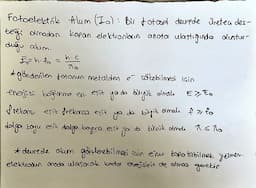 Fotoelektrik Akım (I₀): Bir fotosel devrede üreteç des-
teği olmadan kopan elektronların anota ulaştığında oluştur-
duğu akım.
E₀ = h.f₀ = h.c / λ₀
* gönderilen fotonun metalden e⁻ sökebilmesi için
enerjisi bağlanma en. eşit ya da büyük olmalı E ≥ E₀
frekansı eşik frekansa eşit ya da büyük olmalı f ≥ f₀
dalga boyu eşik dalga boyuna eşit ya da küçük olmalı λ ≤ λ₀
* devrede akım gözlenebilmesi için
elektronların anoda ulaşacak kadar enerjisinin de olması gerekir